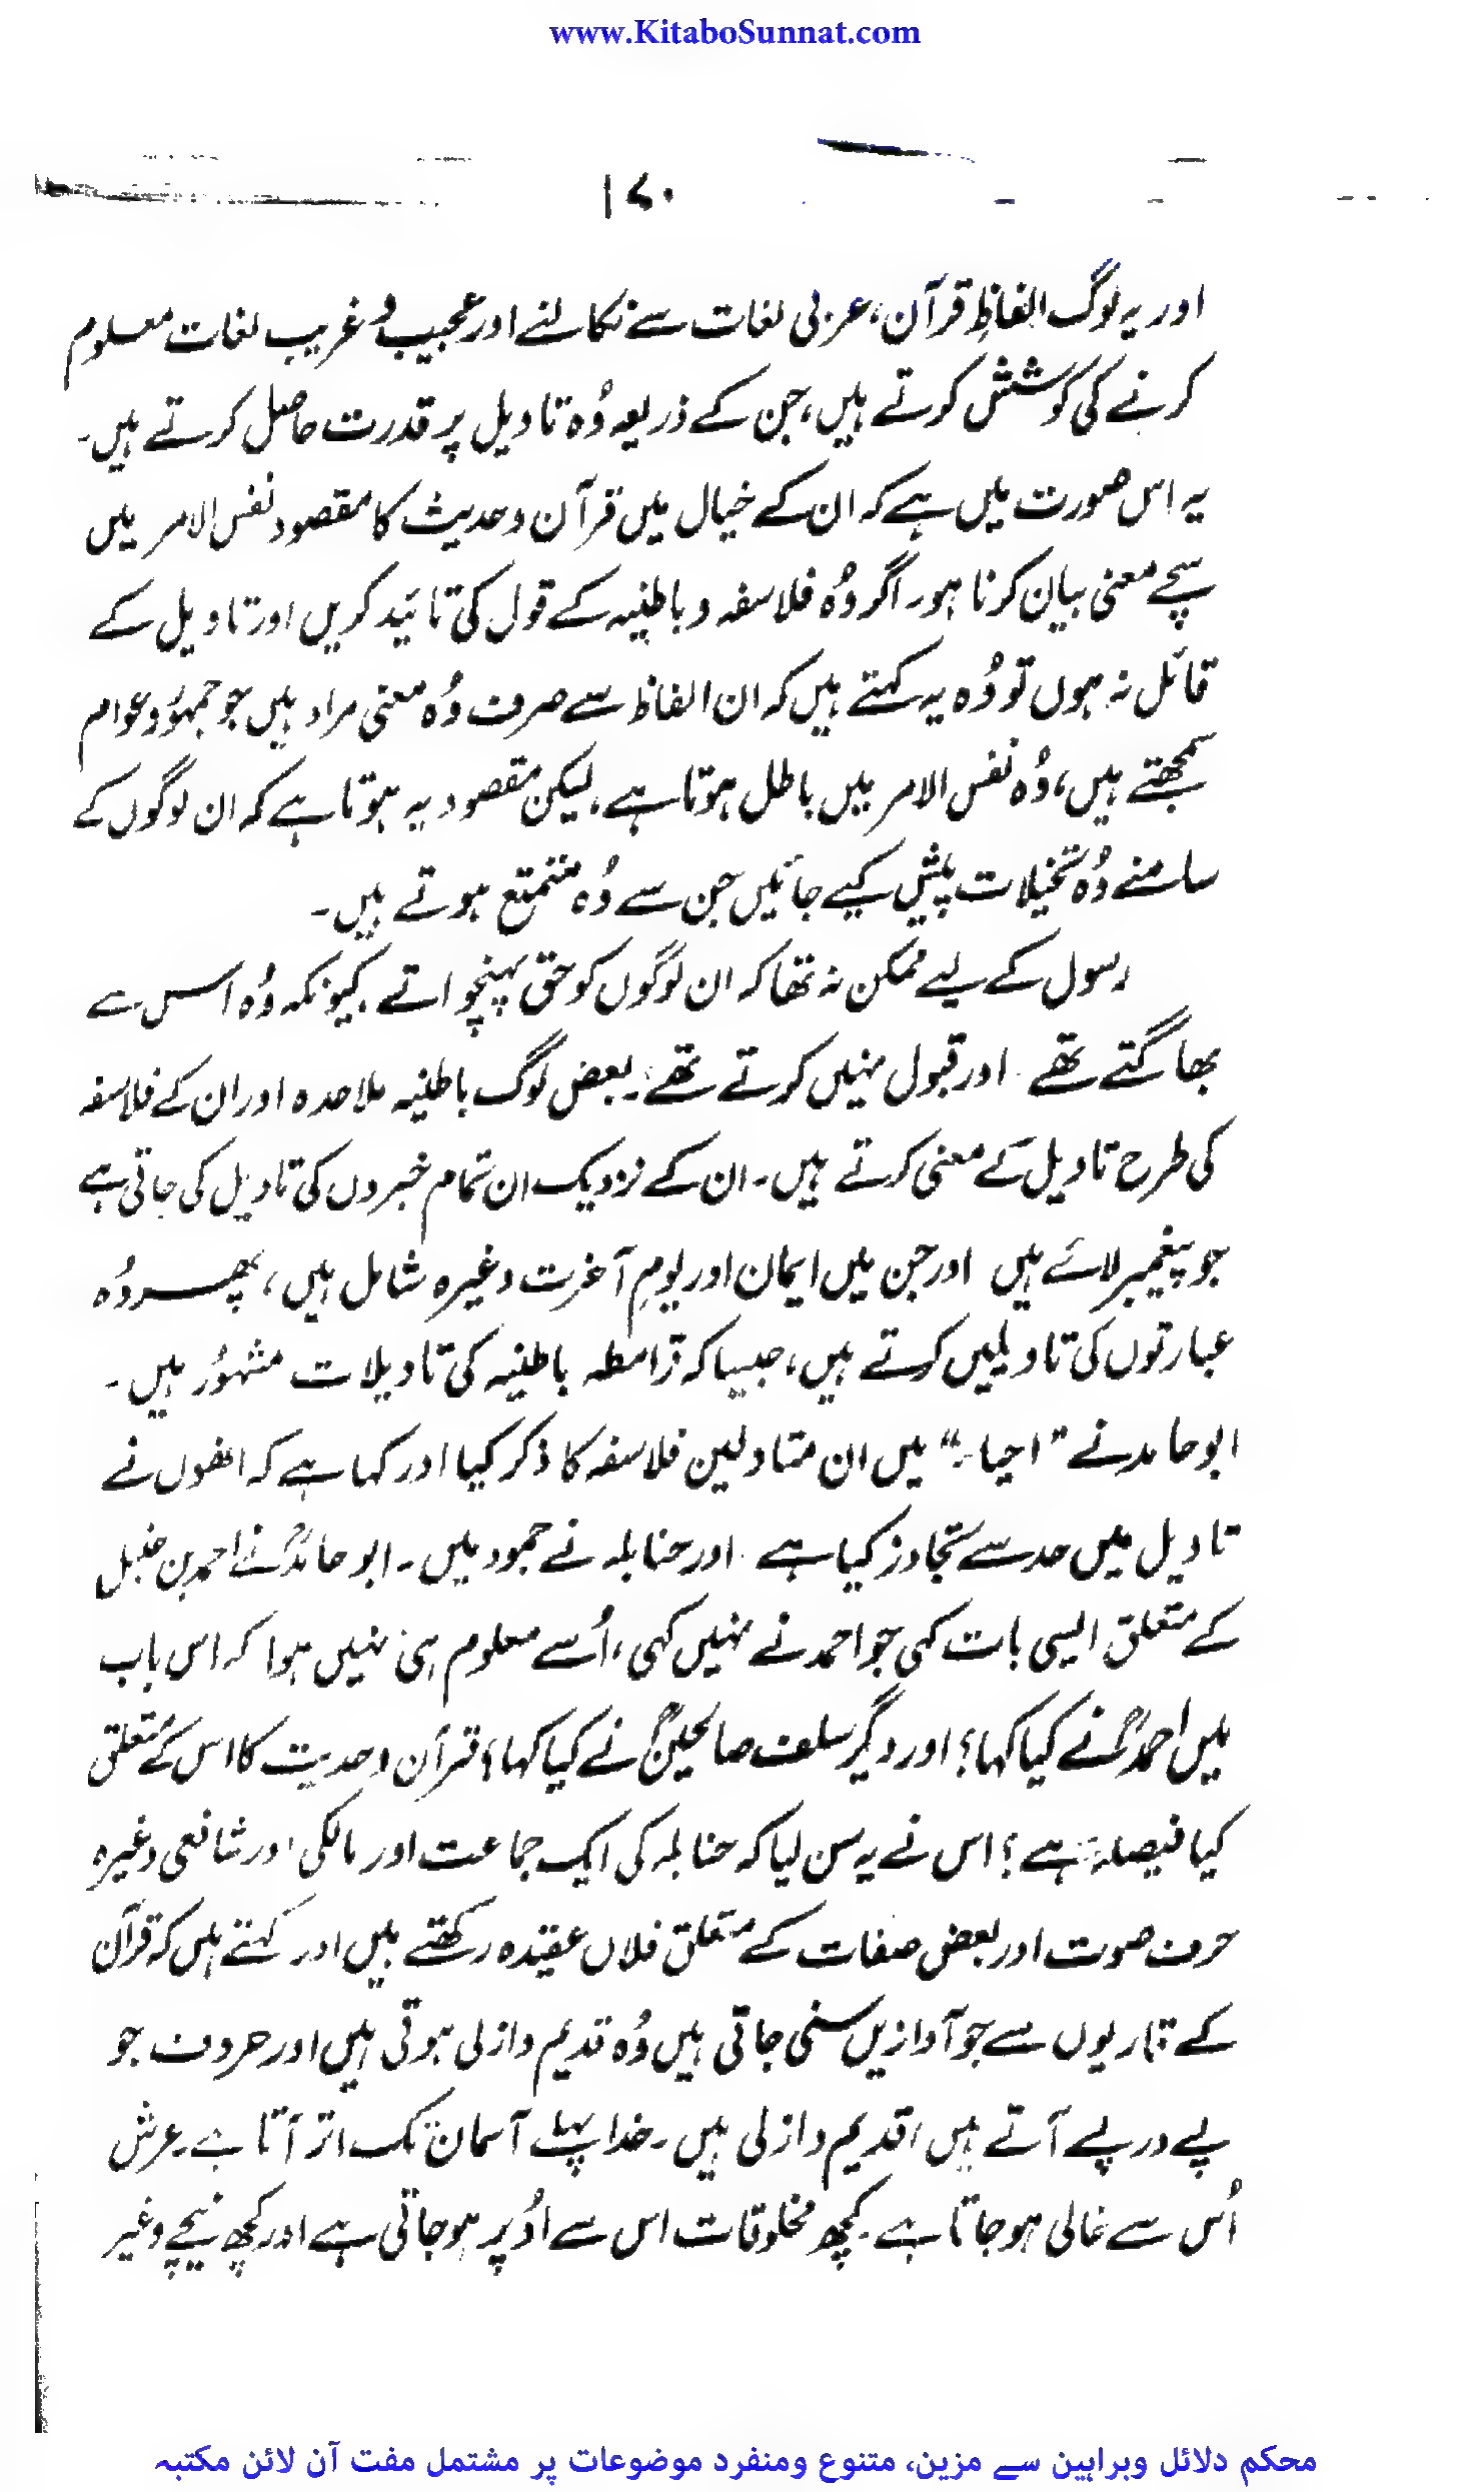 www.KitaboSunnat.com
۱۷۰
اور یہ لوگ الفاظِ قرآن، عربی لغات سے نکالنے اور عجیب و غریب لغات معلوم
کرنے کی کوشش کرتے ہیں، جن کے ذریعہ وُہ تاویل پر قدرت حاصل کرتے ہیں۔
یہ اس صورت میں ہے کہ ان کے خیال میں قرآن و حدیث کا مقصود نفس الامر میں
سچے معنی بیان کرنا ہو۔ اگر وُہ فلاسفہ و باطنیہ کے قول کی تائید کریں اور تاویل کے
قائل نہ ہوں تو وُہ یہ کہتے ہیں کہ ان الفاظ سے صرف وُہ معنی مراد ہیں جو جمہُور و عوام
سمجھتے ہیں، وُہ نفس الامر میں باطل ہوتا ہے، لیکن مقصود یہ ہوتا ہے کہ ان لوگوں کے
سامنے وُہ تخیلات پیش کیے جائیں جن سے وُہ متمتع ہوتے ہیں۔
رسول کے لیے ممکن نہ تھا کہ ان لوگوں کو حق پہنچواتے، کیونکہ وُہ اس سے
بھاگتے تھے۔ اور قبول نہیں کرتے تھے؛ بعض لوگ باطنیہ ملاحدہ اور ان کے فلاسفہ
کی طرح تاویل کے معنی کرتے ہیں۔ ان کے نزدیک ان تمام خبروں کی تاویل کی جاتی ہے
جو پیغمبر لائے ہیں اور جن میں ایمان اور یومِ آخرت وغیرہ شامل ہیں، پھر وُہ
عبارتوں کی تاویلیں کرتے ہیں، جیسا کہ قرامطہ باطنیہ کی تاویلات مشہُور ہیں۔
ابو حامد نے "احیاء" میں ان متاولین فلاسفہ کا ذکر کیا اور کہا ہے کہ انھوں نے
تاویل میں حد سے تجاوز کیا ہے۔ اور حنابلہ نے جمود میں۔ ابو حامدؒ نے احمد بن حنبل
کے متعلق ایسی بات کہی جو احمد نے نہیں کہی، اُسے معلوم ہی نہیں ہوا کہ اس باب
میں احمدؒ نے کیا کہا؟ اور دیگر سلف صالحینؒ نے کیا کہا؟ قرآن و حدیث کا اس کے متعلق
کیا فیصلہ ہے؟ اس نے یہ سن لیا کہ حنابلہ کی ایک جماعت اور مالکی اور شافعی وغیرہ
حرف صوت اور بعض صفات کے متعلق فلاں عقیدہ رکھتے ہیں اور کہتے ہیں کہ قرآن
کے قاریوں سے جو آوازیں سنی جاتی ہیں وُہ قدیم و ازلی ہوتی ہیں اور حروف جو
پے در پے آتے ہیں، قدیم و ازلی ہیں۔ خدا پہلے آسمان تک اتر آتا ہے۔ عرش
اُس سے خالی ہو جاتا ہے۔ کچھ مخلوقات اس سے اوُپر ہو جاتی ہے اور کچھ نیچے وغیر
محکم دلائل وبراہین سے مزین، متنوع ومنفرد موضوعات پر مشتمل مفت آن لائن مکتبہ